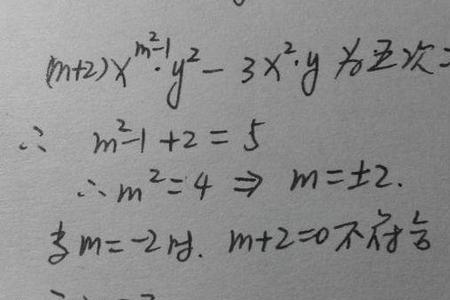 (m+2)x^{m²-1}·y² - 3x²·y 为五次二
∴ m²-1+2=5
∴ m²=4 ⇒ m=±2.
当m=-2时. m+2=0不符合